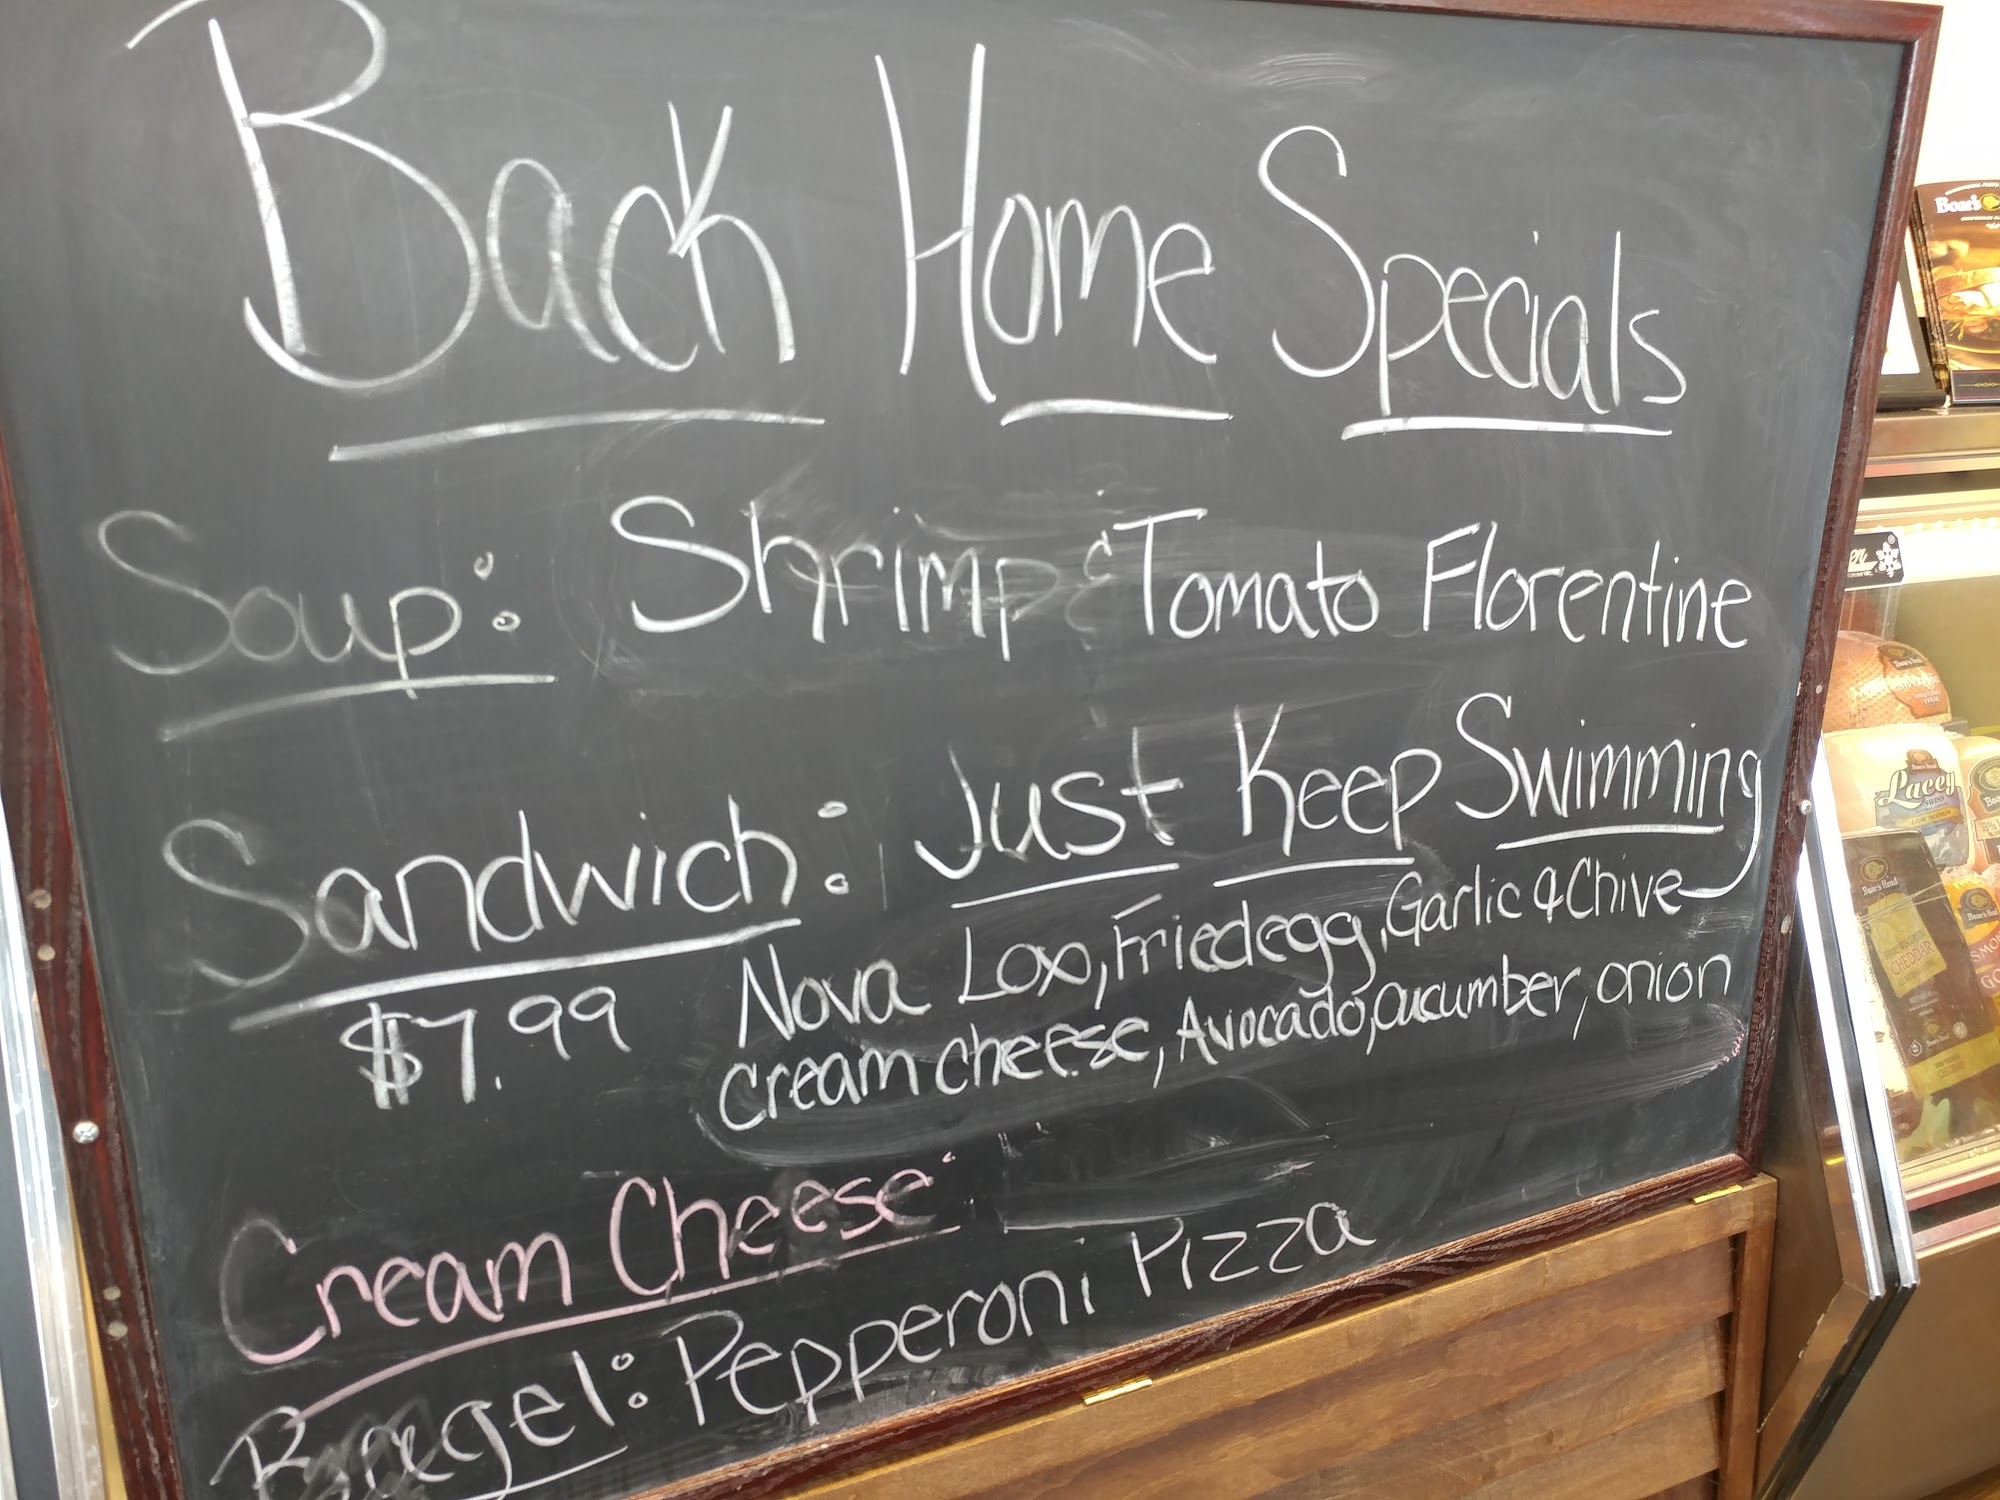 Back Home Specials
Soup: Shrimp & Tomato Florentine
Sandwich: Just Keep Swimming
$7.99 Nova Lox, Fried egg, Garlic & Chive
cream cheese, Avocado, cucumber, onion
Cream Cheese:
Bagel: Pepperoni Pizza
Boar's
Boar's Head
Lacey
SWISS
Boar's Head
CHEDDAR